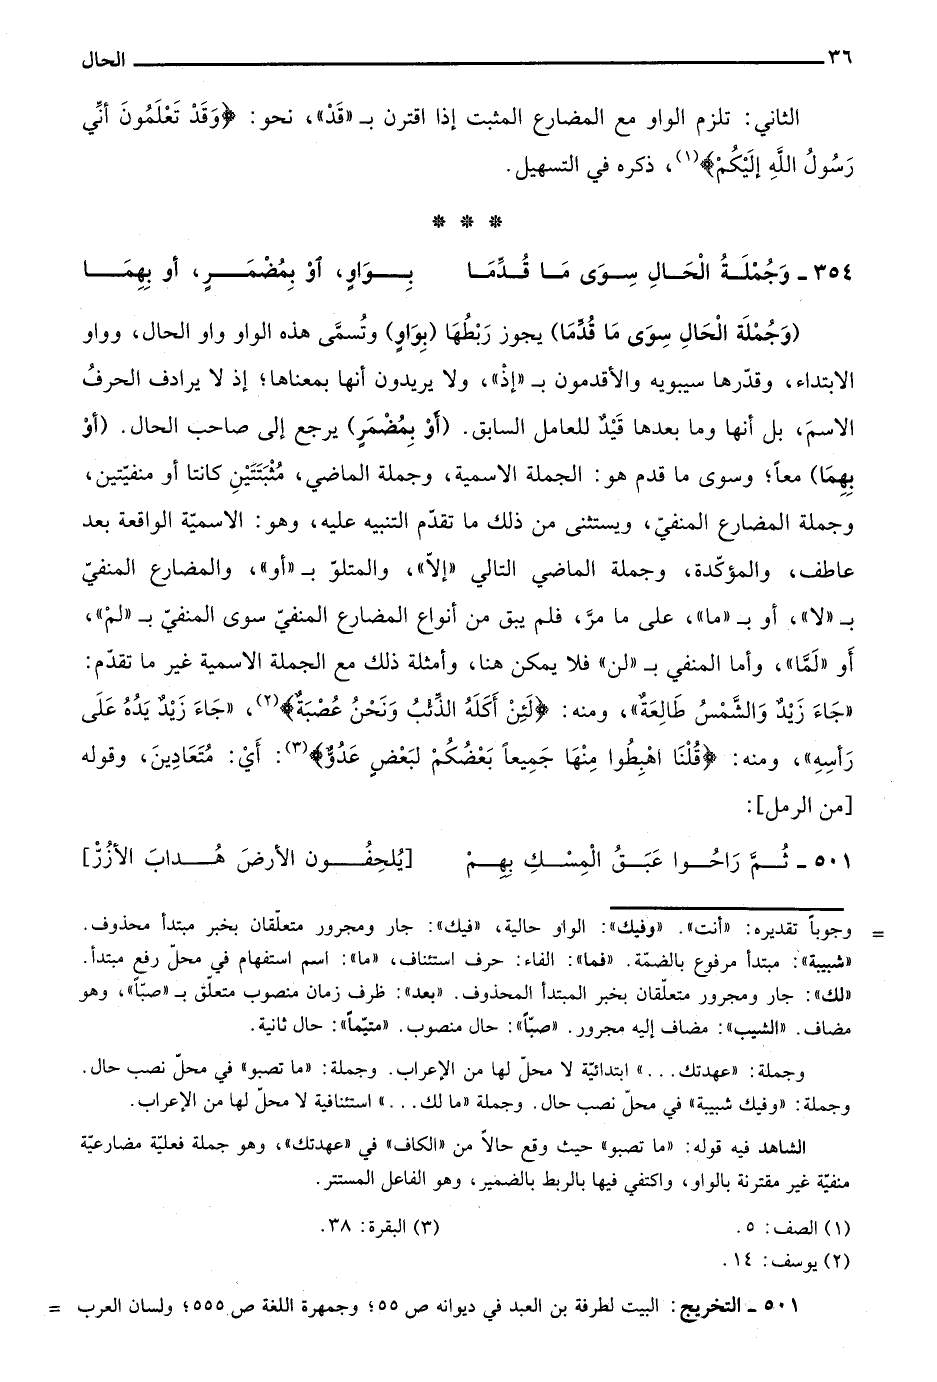 ٣٦ الحال
الثاني: تلزم الواو مع المضارع المثبت إذا اقترن بـ «قَدْ»، نحو: ﴿وَقَدْ تَعْلَمُونَ أَنِّي
رَسُولُ اللَّهِ إِلَيْكُمْ﴾(١)، ذكره في التسهيل.
* * *
٣٥٤ ـ وَجُمْلَةُ الْحَالِ سِوَى مَا قُدِّمَا بِوَاوٍ، اَوْ بِمُضْمَرٍ، أو بِهِمَا
(وَجُمْلَة الْحَالِ سِوَى مَا قُدِّمَا) يجوز رَبْطُهَا (بِوَاوٍ) وتُسمَّى هذه الواو واو الحال، وواو
الابتداء، وقدّرها سيبويه والأقدمون بـ «إذْ»، ولا يريدون أنها بمعناها؛ إذ لا يرادف الحرفُ
الاسمَ، بل أنها وما بعدها قَيْدٌ للعامل السابق. (أَوْ بِمُضْمَرٍ) يرجع إلى صاحب الحال. (أوْ
بِهِمَا) معاً؛ وسوى ما قدم هو: الجملة الاسمية، وجملة الماضي، مُثْبَتَتَيْنِ كانتا أو منفيّتين،
وجملة المضارع المنفيّ، ويستثنى من ذلك ما تقدّم التنبيه عليه، وهو: الاسميّة الواقعة بعد
عاطف، والمؤكّدة، وجملة الماضي التالي «إلاّ»، والمتلوّ بـ «أو»، والمضارع المنفيّ
بـ «لا»، أو بـ «ما»، على ما مرَّ، فلم يبق من أنواع المضارع المنفيّ سوى المنفيّ بـ «لمْ»،
أَو «لَمَّا»، وأما المنفي بـ «لن» فلا يمكن هنا، وأمثلة ذلك مع الجملة الاسمية غير ما تقدّم:
«جَاءَ زَيْدٌ وَالشَّمْسُ طَالِعَةٌ»، ومنه: ﴿لَئِنْ أَكَلَهُ الذِّئْبُ وَنَحْنُ عُصْبَةٌ﴾(٢)، «جَاءَ زَيْدٌ يَدُهُ عَلَى
رَأسِهِ»، ومنه: ﴿قُلْنَا اهْبِطُوا مِنْهَا جَمِيعاً بَعْضُكُمْ لبَعْضٍ عَدُوٌّ﴾(٣): أَيْ: مُتَعَادِينَ، وقوله
[من الرمل]:
٥٠١ ـ ثُمَّ رَاحُوا عَبَقُ الْمِسْكِ بِهِمْ [يُلحِفُون الأرضَ هُدابَ الأزُرْ]
= وجوباً تقديره: «أنت». «وفيك»: الواو حالية، «فيك»: جار ومجرور متعلّقان بخبر مبتدأ محذوف.
«شبيبة»: مبتدأ مرفوع بالضمّة. «فما»: الفاء: حرف استئناف، «ما»: اسم استفهام في محلّ رفع مبتدأ.
«لك»: جار ومجرور متعلّقان بخبر المبتدأ المحذوف. «بعد»: ظرف زمان منصوب متعلّق بـ «صبّا»، وهو
مضاف. «الشيب»: مضاف إليه مجرور. «صبّا»: حال منصوب. «متيّما»: حال ثانية.
وجملة: «عهدتك...» ابتدائيّة لا محلّ لها من الإعراب. وجملة: «ما تصبو» في محلّ نصب حال.
وجملة: «وفيك شبيبة» في محلّ نصب حال. وجملة «ما لك...» استئنافية لا محلّ لها من الإعراب.
الشاهد فيه قوله: «ما تصبو» حيث وقع حالاً من «الكاف» في «عهدتك»، وهو جملة فعليّة مضارعيّة
منفيّة غير مقترنة بالواو، واكتفي فيها بالربط بالضمير، وهو الفاعل المستتر.
(١) الصف: ٥. (٣) البقرة: ٣٨.
(٢) يوسف: ١٤.
٥٠١ ـ التخريج: البيت لطرفة بن العبد في ديوانه ص ٥٥؛ وجمهرة اللغة ص ٥٥٥؛ ولسان العرب =